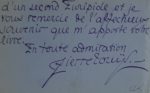 d'un second Euripide et je
vous remercie de l'affectueux
souvenir que m'apporte votre
livre.
En toute admiration
Pierre Louÿs